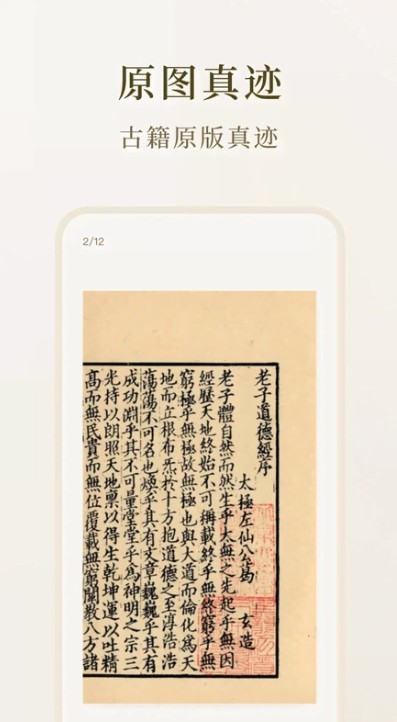 原图真迹
古籍原版真迹
2/12
老子道德經序
太極左仙公葛 玄造
老子體自然而然生乎太無之先起乎無因
經歷天地終始不可稱載終乎無終窮乎無
窮極乎無極故無極也與大道而倫化為天
地而立根布炁於十方抱道德之至淳浩浩
蕩蕩不可名也煥乎其有文章巍巍乎其有
成功淵乎其不可量堂堂乎為神明之宗三
光持以朗照天地稟以得生乾坤運以吐精
高而無民貴而無位覆載無窮闡教八方諸